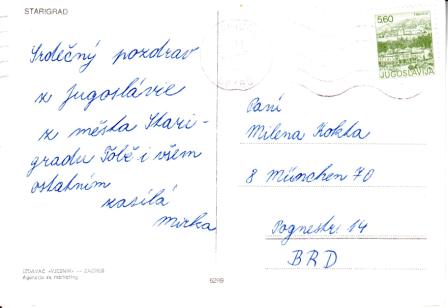 STARIGRAD
Srdečný pozdrav
z Jugoslávie
z města Stari-
gradu Tobě i všem
ostatním
zasílá
Mirka
5,60
JUGOSLAVIJA
Paní
Milena Kokta
8 München 70
Pognestr. 14
BRD
IZDAVAČ «VJESNIK» — ZAGREB
Agencija za marketing